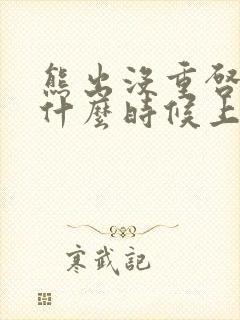 熊出沒重啓
什麼時候上
寒武記